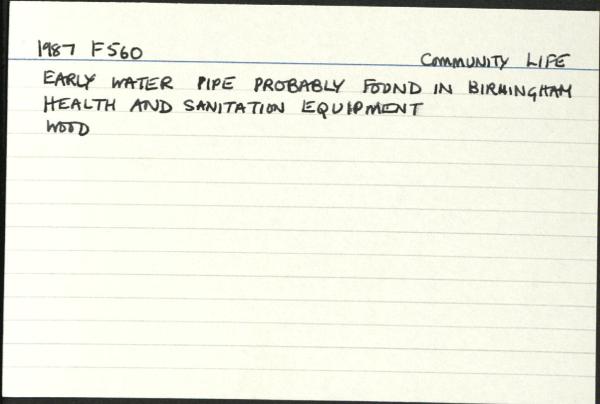 1987 F560 COMMUNITY LIFE
EARLY WATER PIPE PROBABLY FOUND IN BIRMINGHAM
HEALTH AND SANITATION EQUIPMENT
WOOD